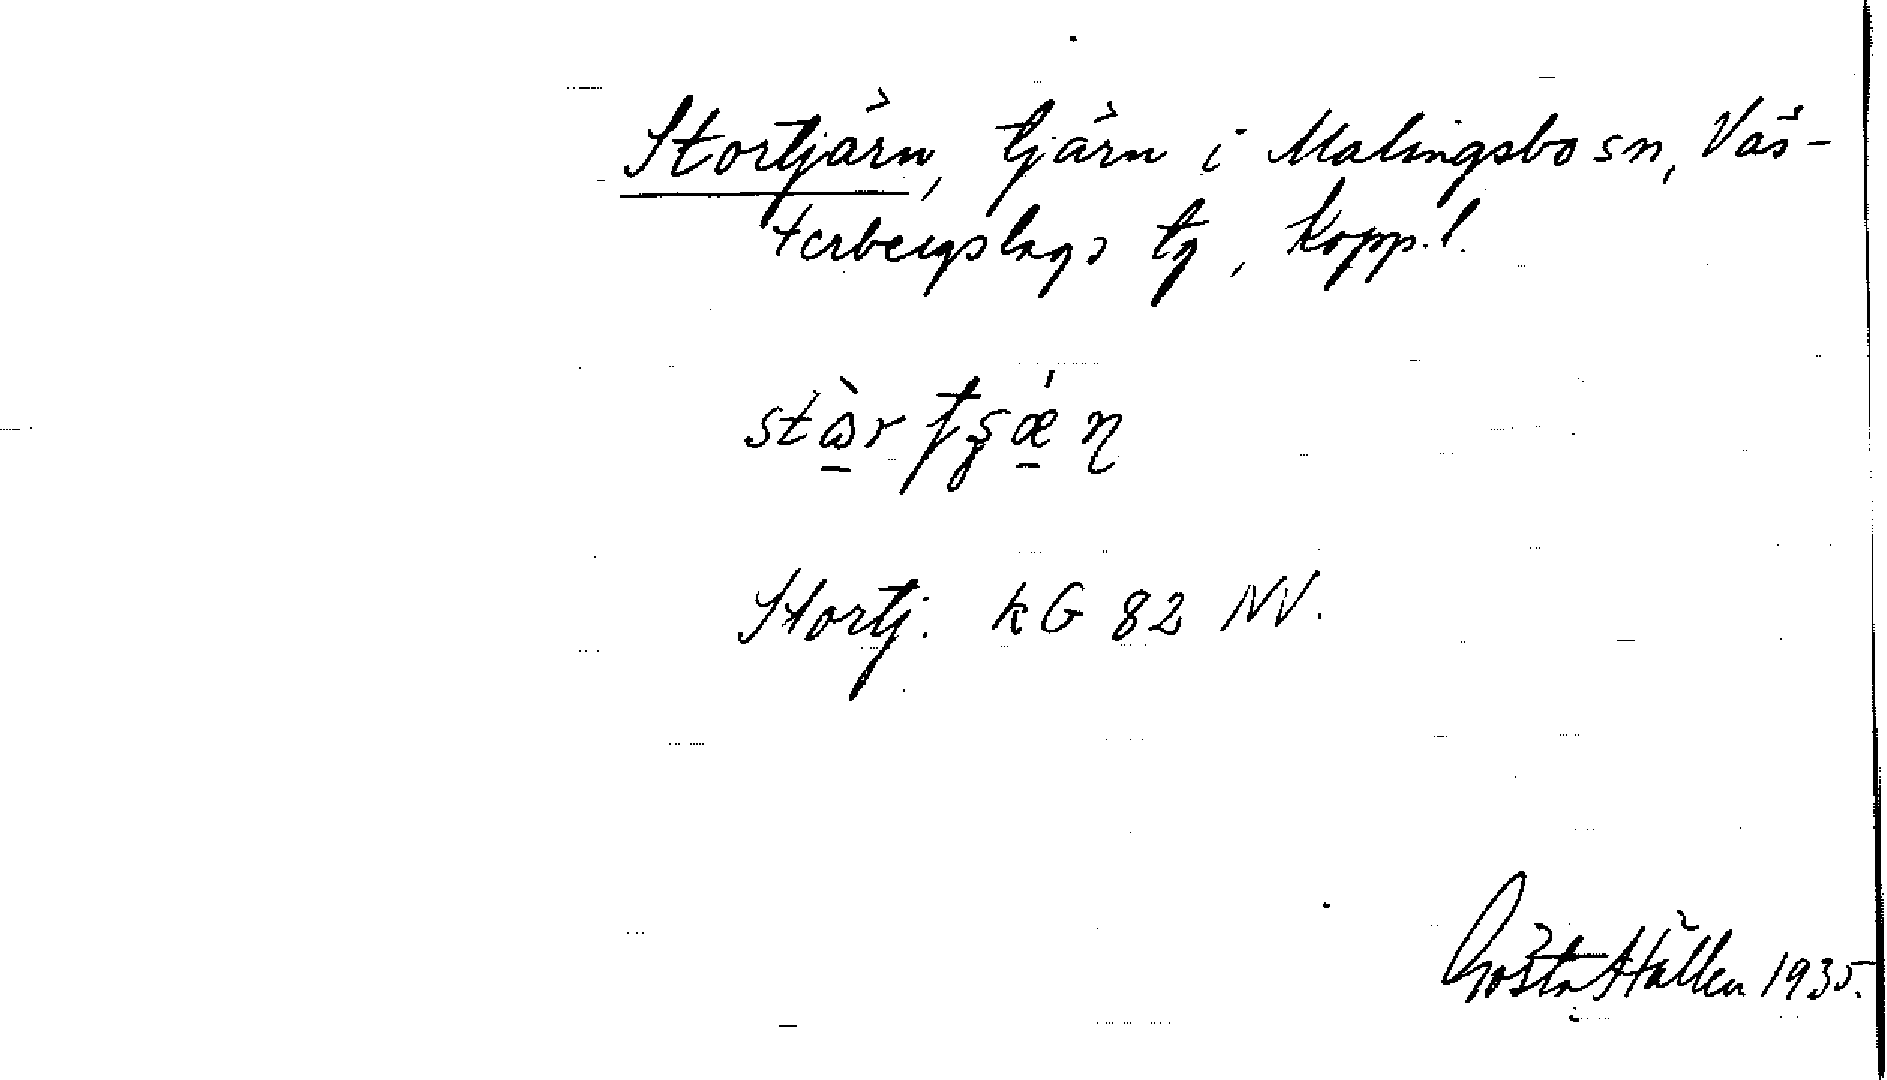 Stortjärn, tjärn i Malingsbo sn, Väs-
terbergslags tg, Kopp. l.
Stortj. kG 82 NV.
Gösta Hällen 1935.